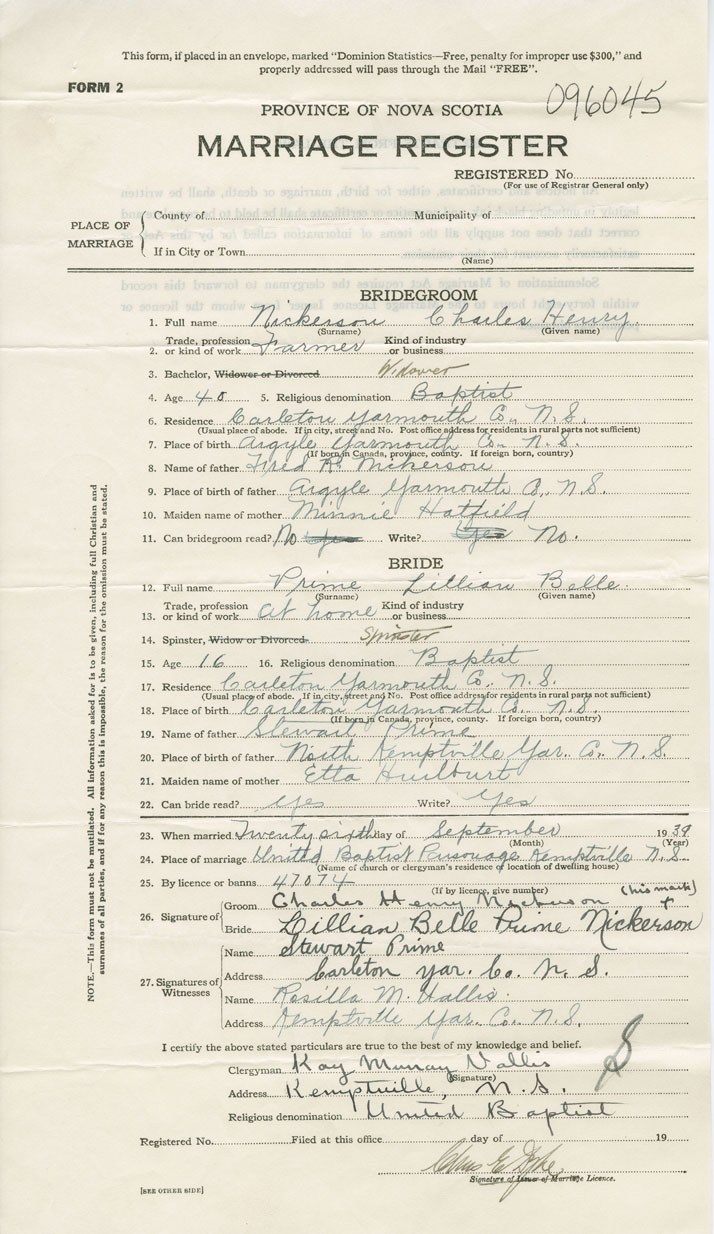 This form, if placed in an envelope, marked "Dominion Statistics—Free, penalty for improper use $300," and
properly addressed will pass through the Mail "FREE".
FORM 2
096045
PROVINCE OF NOVA SCOTIA
MARRIAGE REGISTER
REGISTERED No.
(For use of Registrar General only)
PLACE OF MARRIAGE
County of Municipality of
If in City or Town
(Name)
BRIDEGROOM
1. Full name Nickerson Charles Henry
(Surname) (Given name)
2. Trade, profession or kind of work Farmer Kind of industry or business
3. Bachelor, Widower or Divorced Widower
4. Age 40 5. Religious denomination Baptist
6. Residence Carleton Yarmouth Co., N.S.
(Usual place of abode. If in city, street and No. Post office address for residents in rural parts not sufficient)
7. Place of birth Argyle Yarmouth Co. N.S.
(If born in Canada, province, county. If foreign born, country)
8. Name of father Fred Nickerson
9. Place of birth of father Argyle Yarmouth Co. N.S.
10. Maiden name of mother Minnie Hatfield
11. Can bridegroom read? No Yes Write? Yes No.
BRIDE
12. Full name Prime Lillian Belle
(Surname) (Given name)
13. Trade, profession or kind of work At home Kind of industry or business
14. Spinster, Widow or Divorced Spinster
15. Age 16 16. Religious denomination Baptist
17. Residence Carleton Yarmouth Co. N.S.
(Usual place of abode. If in city, street and No. Post office address for residents in rural parts not sufficient)
18. Place of birth Carleton Yarmouth Co. N.S.
(If born in Canada, province, county. If foreign born, country)
19. Name of father Stewart Prime
20. Place of birth of father North Kemptville Yar. Co. N.S.
21. Maiden name of mother Etta Hurlburt
22. Can bride read? Yes Write? Yes
23. When married Twenty sixth day of September 1939
(Month) (Year)
24. Place of marriage United Baptist Parsonage Kemptville N.S.
(Name of church or clergyman's residence or location of dwelling house)
25. By licence or banns 47074
(If by licence, give number) (his mark)
26. Signature of Groom Charles Henry Nickerson +
Bride Lillian Belle Prime Nickerson
27. Signatures of Witnesses
Name Stewart Prime
Address Carleton Yar. Co. N.S.
Name Rosilla M. Vallis
Address Kemptville Yar. Co. N.S.
I certify the above stated particulars are true to the best of my knowledge and belief.
Clergyman Kay Murray Vallis
(Signature)
Address Kemptville, N.S.
Religious denomination United Baptist
Registered No. Filed at this office day of 19
Signature of Issuer of Marriage Licence.
[SEE OTHER SIDE]
NOTE.—This form must not be mutilated. All information asked for is to be given, including full Christian and
surnames of all parties, and if for any reason this is impossible, the reason for the omission must be stated.